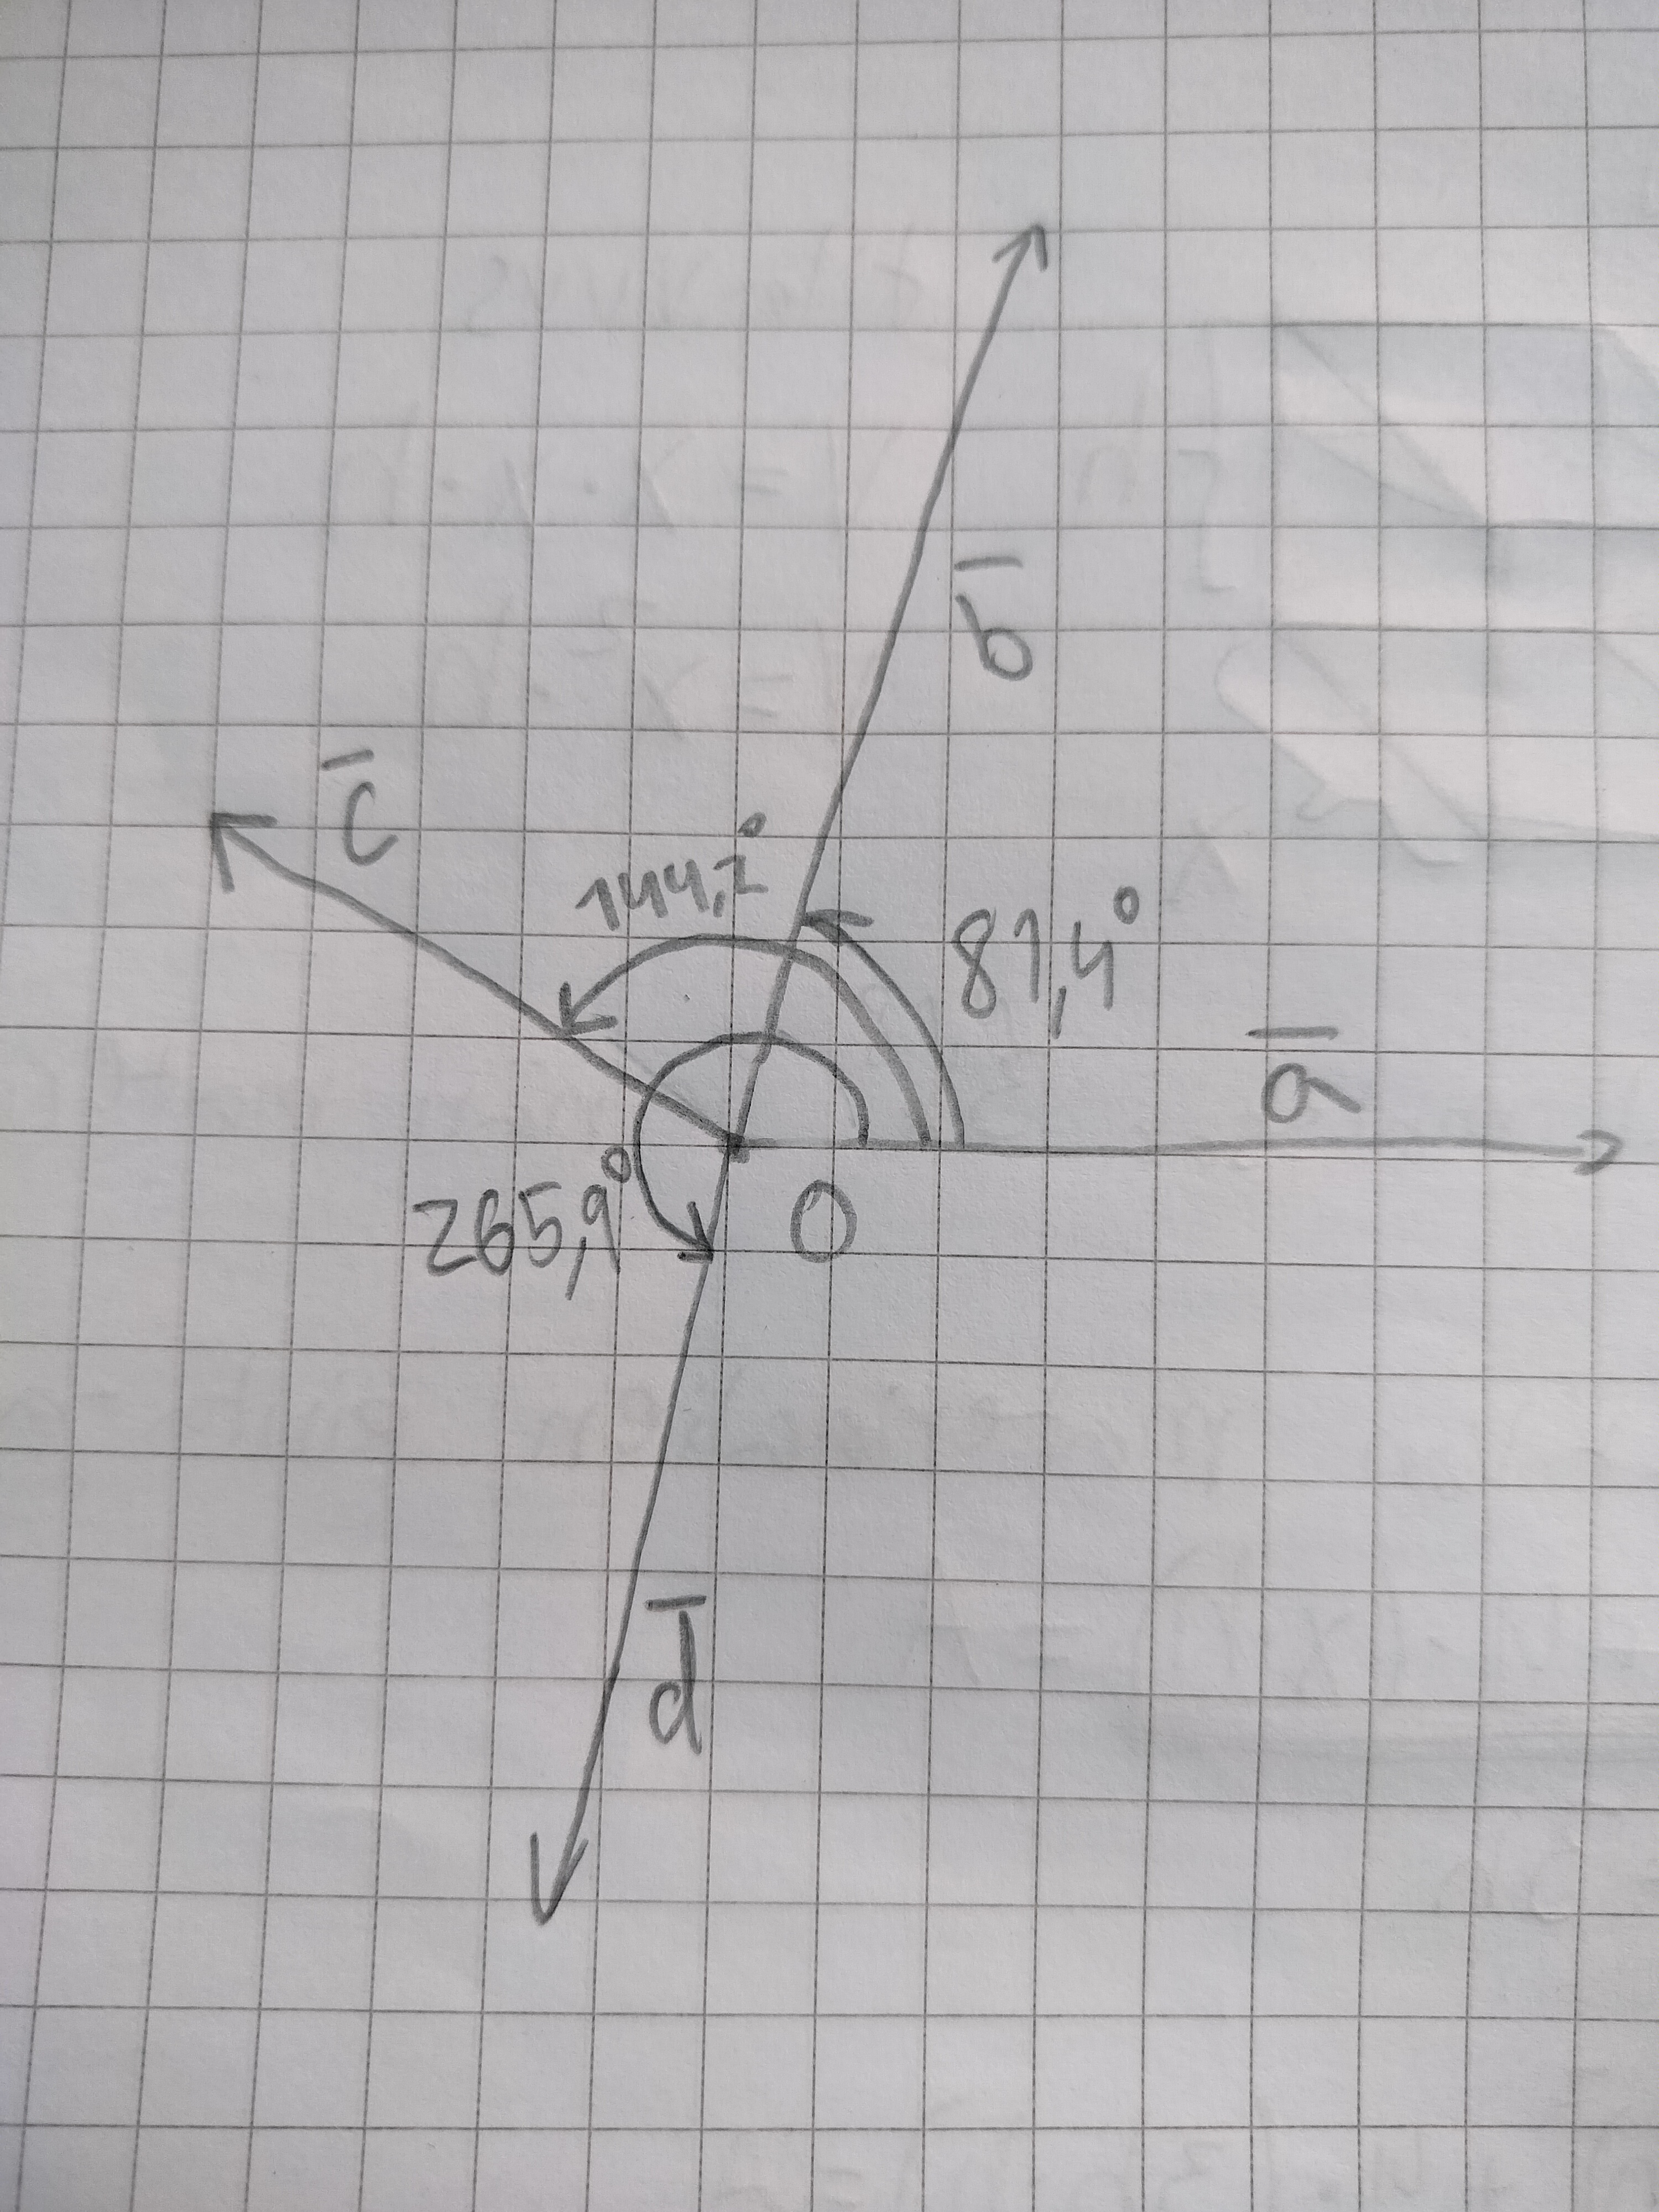 b̅
c̅
144,2°
81,4°
a̅
265,9°
O
d̅